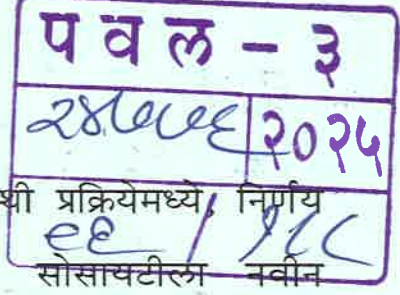 प व ल - ३
२४७७६ २०२५
थी प्रक्रियेमध्ये, निर्णय
सोसायटीला नवीन